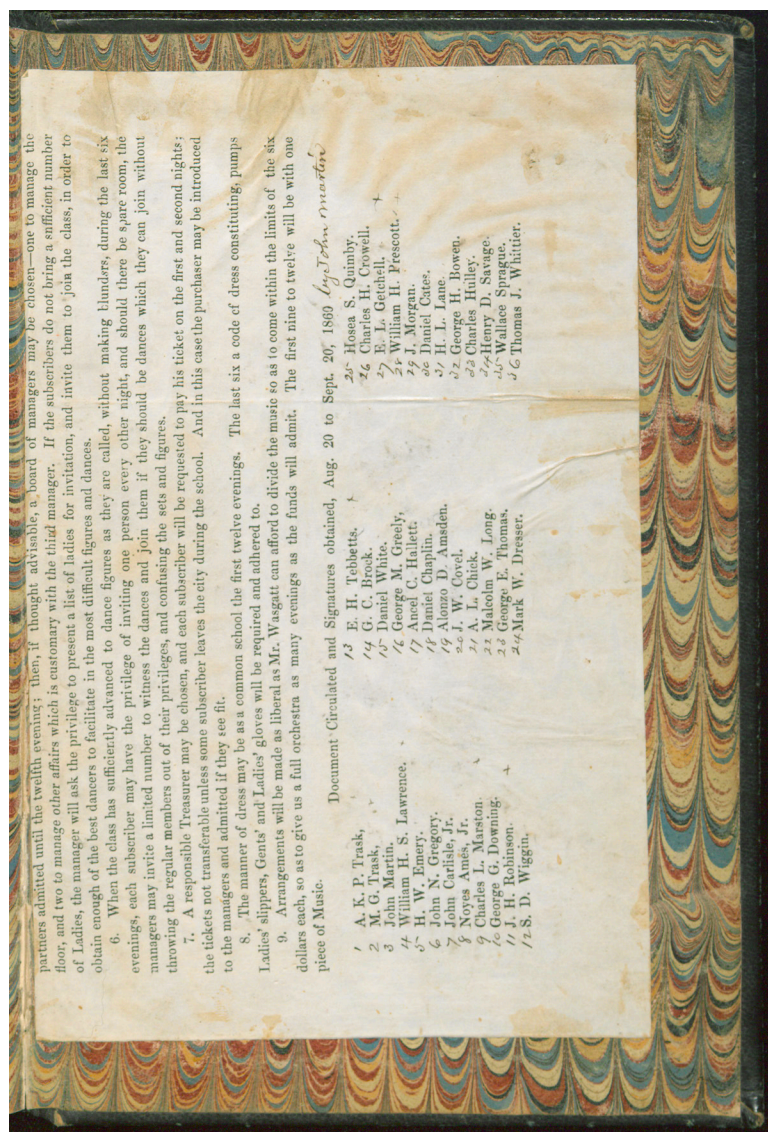 partners admitted until the twelfth evening; then, if thought advisable, a board of managers may be chosen—one to manage the
floor, and two to manage other affairs which is customary with the third manager. If the subscribers do not bring a snfficient number
of Ladies, the manager will ask the privilege to present a list of ladies for invitation, and invite them to join the class, in order to
obtain enough of the best dancers to facilitate in the most difficult figures and dances.
6. When the class has sufficiently advanced to dance figures as they are called, without making blunders, during the last six
evenings, each subscriber may have the privilege of inviting one person every other night, and should there be spare room, the
managers may invite a limited number to witness the dances and join them if they should be dances which they can join without
throwing the regular members out of their privileges, and confusing the sets and figures.
7. A responsible Treasurer may be chosen, and each subscriber will be requested to pay his ticket on the first and second nights;
the tickets not transferable unless some subscriber leaves the city during the school. And in this case the purchaser may be introduced
to the managers and admitted if they see fit.
8. The manner of dress may be as a common school the first twelve evenings. The last six a code of dress constituting, pumps
Ladies' slippers, Gents' and Ladies' gloves will be required and adhered to.
9. Arrangements will be made as liberal as Mr. Wasgatt can afford to divide the music so as to come within the limits of the six
dollars each, so as to give us a full orchestra as many evenings as the funds will admit. The first nine to twelve will be with one
piece of Music.
Document Circulated and Signatures obtained, Aug. 20 to Sept. 20, 1860 by John Martin
1 A. K. P. Trask,
2 M. G. Trask,
3 John Martin.
4 William H. S. Lawrence.
5 H. W. Emery.
6 John N. Gregory.
7 John Carlisle, Jr.
8 Noyes Ames, Jr.
9 Charles L. Marston
10 George G. Downing.
11 J. H. Robinson.
12 S. D. Wiggin.
13 E. H. Tebbetts.
14 G. C. Brock.
15 Daniel White.
16 George M. Greely,
17 Ancel C. Hallett.
18 Daniel Chaplin.
19 Alonzo D. Amsden.
20 J. W. Covel.
21 A. L. Chick.
22 Malcolm W. Long.
23 George E. Thomas.
24 Mark W. Dresser.
25 Hosea S. Quimby.
26 Charles H. Crowell.
27 E. L. Getchell.
28 William H. Prescott.
29 J. Morgan.
30 Daniel Cates.
31 H. L. Lane.
32 George H. Bowen.
33 Charles Hulley.
34 Henry D. Savage.
35 Wallace Sprague.
36 Thomas J. Whittier.